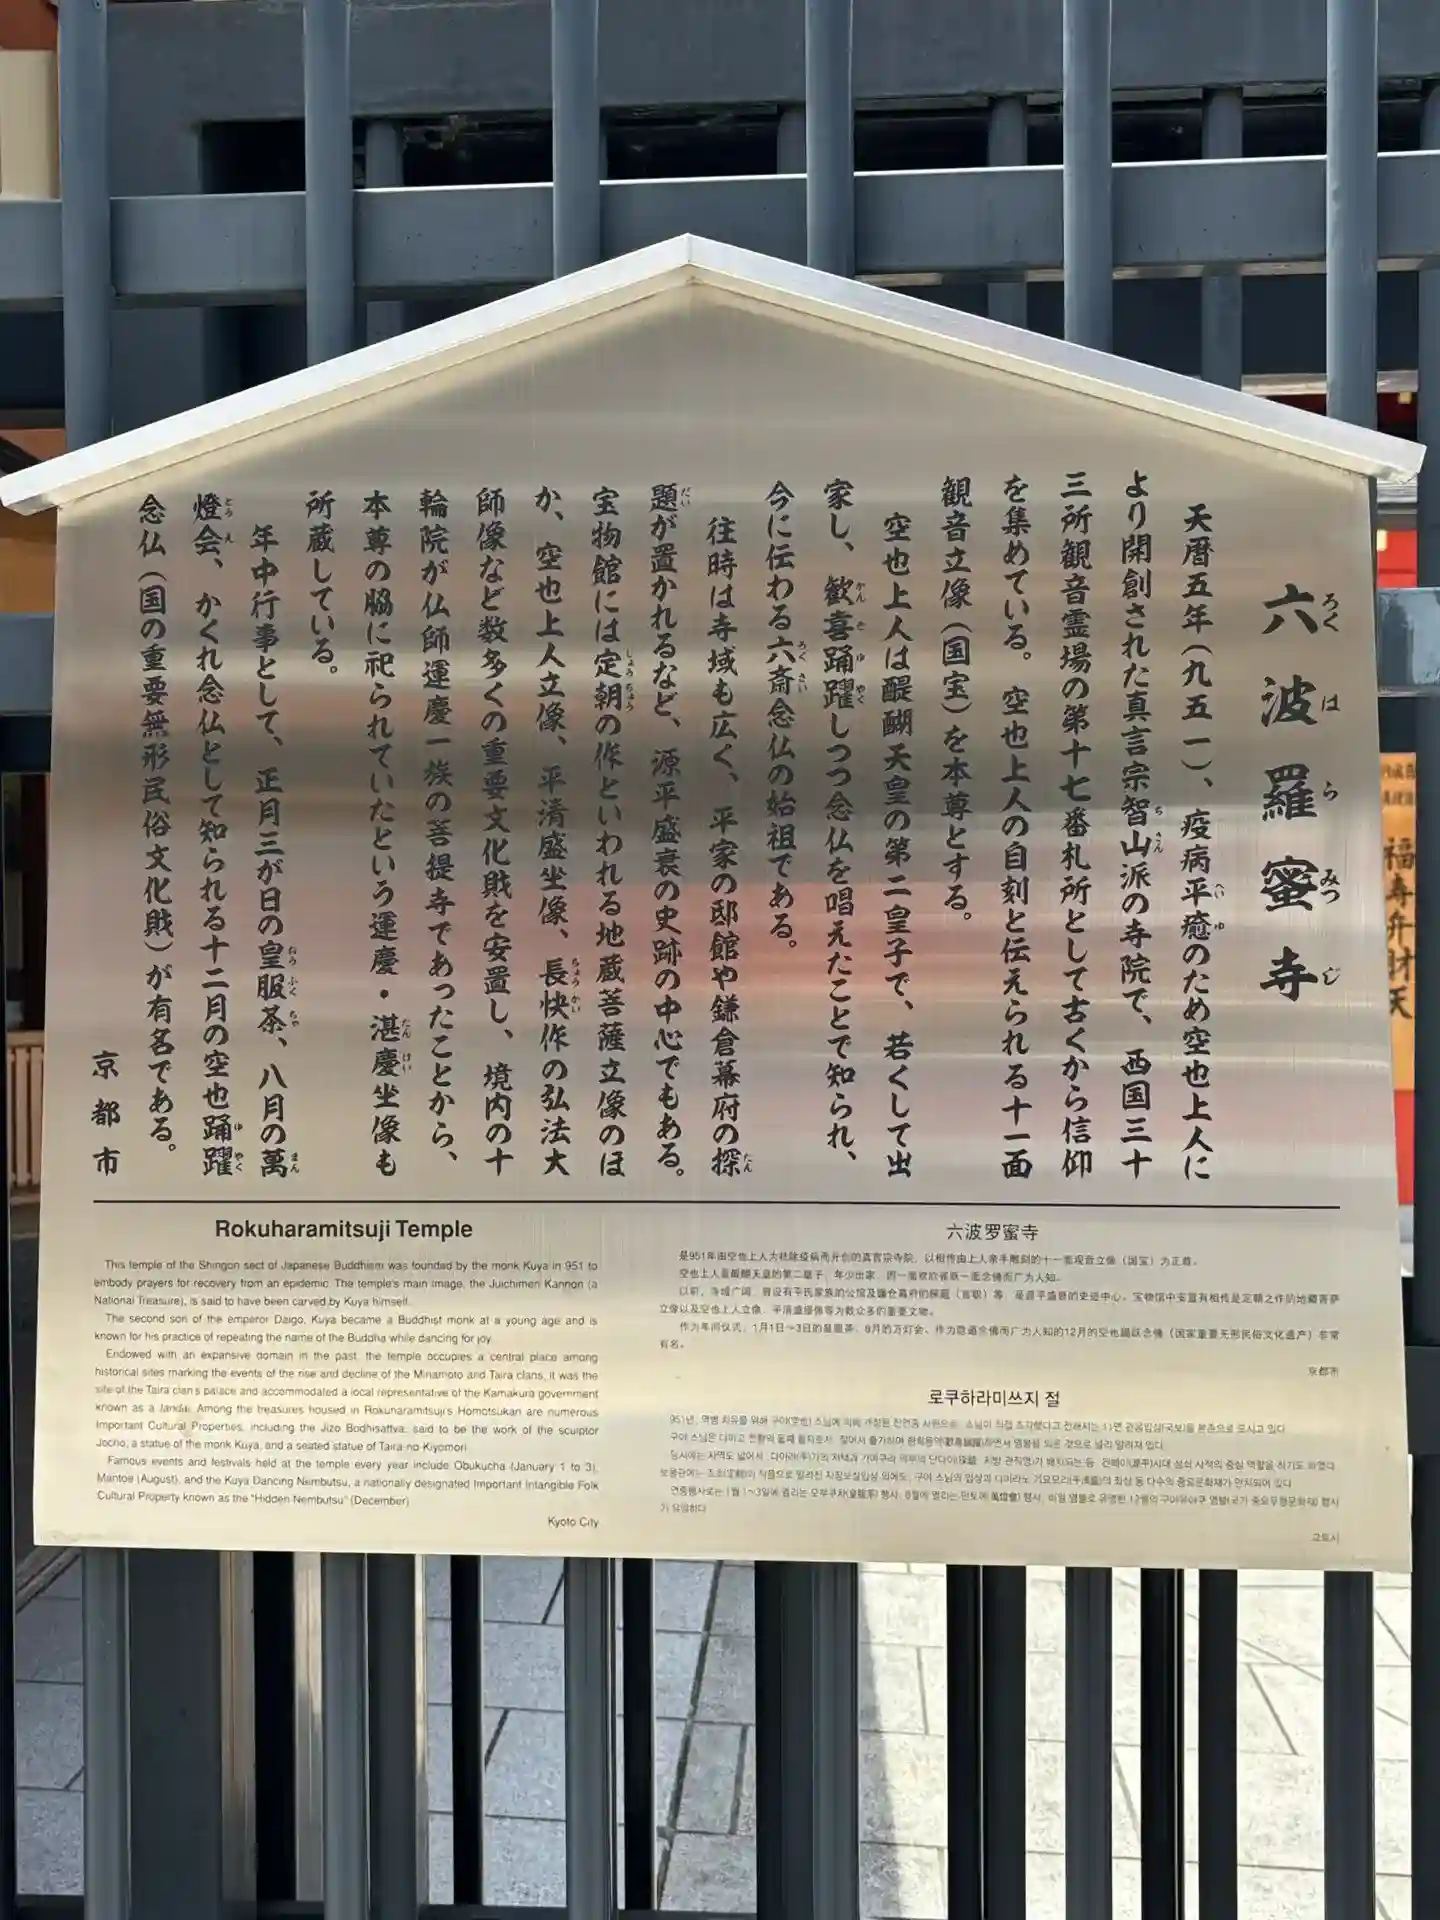 六波羅蜜寺
ろくはらみつじ
天暦五年（九五一）、疫病平癒のため空也上人に
より開創された真言宗智山派の寺院で、西国三十
三所観音霊場の第十七番札所として古くから信仰
を集めている。空也上人の自刻と伝えられる十一面
観音立像（国宝）を本尊とする。
空也上人は醍醐天皇の第二皇子で、若くして出
家し、歓喜踊躍しつつ念仏を唱えたことで知られ、
今に伝わる六斎念仏の始祖である。
往時は寺域も広く、平家の邸館や鎌倉幕府の探
題が置かれるなど、源平盛衰の史跡の中心でもある。
宝物館には定朝の作といわれる地蔵菩薩立像のほ
か、空也上人立像、平清盛坐像、長快作の弘法大
師像など数多くの重要文化財を安置し、境内の十
輪院が仏師運慶一族の菩提寺であったことから、
本尊の脇に祀られていたという運慶・湛慶坐像も
所蔵している。
年中行事として、正月三が日の皇服茶、八月の萬
燈会、かくれ念仏として知られる十二月の空也踊躍
念仏（国の重要無形民俗文化財）が有名である。
京都市
Rokuharamitsuji Temple
This temple of the Shingon sect of Japanese Buddhism was founded by the monk Kuya in 951 to
embody prayers for recovery from an epidemic. The temple's main image, the Juichimen Kannon (a
National Treasure), is said to have been carved by Kuya himself.
The second son of the emperor Daigo, Kuya became a Buddhist monk at a young age and is
known for his practice of repeating the name of the Buddha while dancing for joy.
Endowed with an expansive domain in the past, the temple occupies a central place among
historical sites marking the events of the rise and decline of the Minamoto and Taira clans, it was the
site of the Taira clan's palace and accommodated a local representative of the Kamakura government
known as a tandai. Among the treasures housed in Rokuharamitsuji's Homotsukan are numerous
Important Cultural Properties, including the Jizo Bodhisattva, said to be the work of the sculptor
Jocho, a statue of the monk Kuya, and a seated statue of Taira-no-Kiyomori.
Famous events and festivals held at the temple every year include Obukucha (January 1 to 3),
Mantoe (August), and the Kuya Dancing Nembutsu, a nationally designated Important Intangible Folk
Cultural Property known as the "Hidden Nembutsu" (December)
Kyoto City
六波罗蜜寺
是951年由空也上人为祛除疫病而开创的真言宗寺院，以相传由上人亲手雕刻的十一面观音立像（国宝）为正尊。
空也上人是醍醐天皇的第二皇子，年少出家，因一面欢欣雀跃一面念佛而广为人知。
作为年间仪式，1月1日～3日的皇服茶、8月的万灯会、作为隐避念佛而广为人知的12月的空也踊跃念佛（国家重要无形民俗文化遗产）非常
有名。
京都市
로쿠하라미쓰지 절
교토시
福寿弁財天